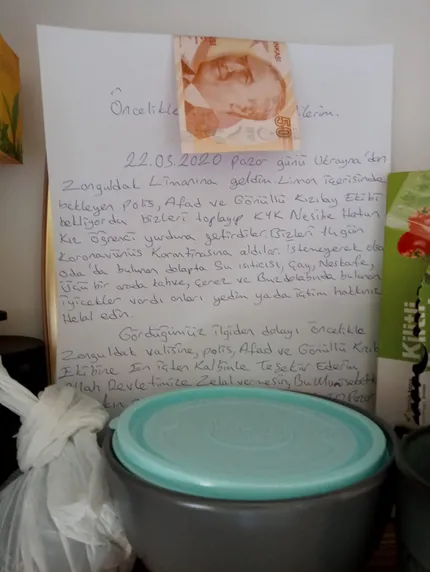 Öncelikle
ilerim.
50
22.03.2020 Pazar günü Ukrayna'dan
Zonguldak Limanına geldim. Liman içerisinde
bekleyen polis, Afad ve Gönüllü Kızılay Ekibi
bekliyordu bizleri toplayıp KYK Nesibe Hatun
Kız öğrenci yurduna getirdiler. Bizleri 14 gün
Koronavirüs Karantinasına aldılar. İstemeyerek olsa
oda'da bulunan dolapta Su ısıtıcısı, Çay, Neskafe,
üçü bir arada kahve, Çerez ve Buzdolabında bulunan
iyicekler vardı onları yedim ya da içtim hakkınızı
Helal edin.
Gördüğümüz ilgiden dolayı öncelikle
Zonguldak valisine, polis, Afad ve Gönüllü Kızıl
Ekibine En içten Kalbimle Teşekür Ederim
Allah Devletimize Zelal vermesin, Bu
Pazar
Kilitli